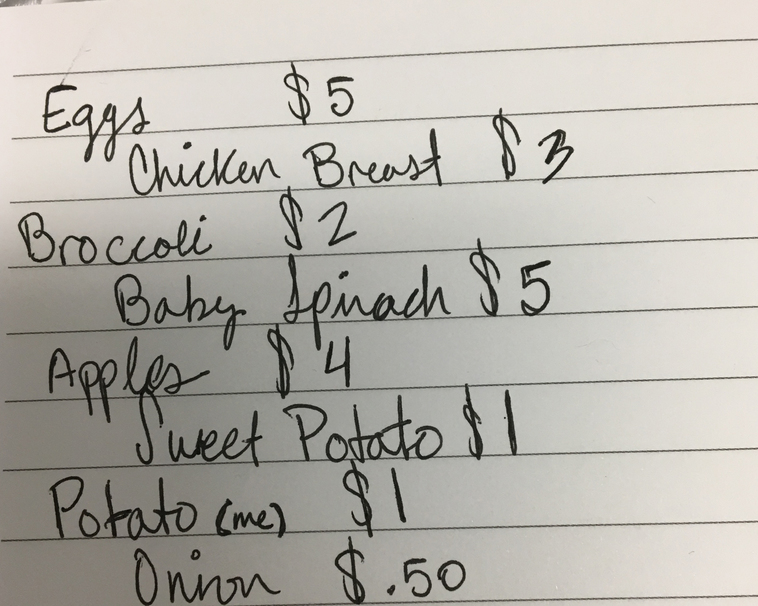 Eggs $5
Chicken Breast $3
Broccoli $2
Baby Spinach $5
Apples $4
Sweet Potato $1
Potato (me) $1
Onion $.50